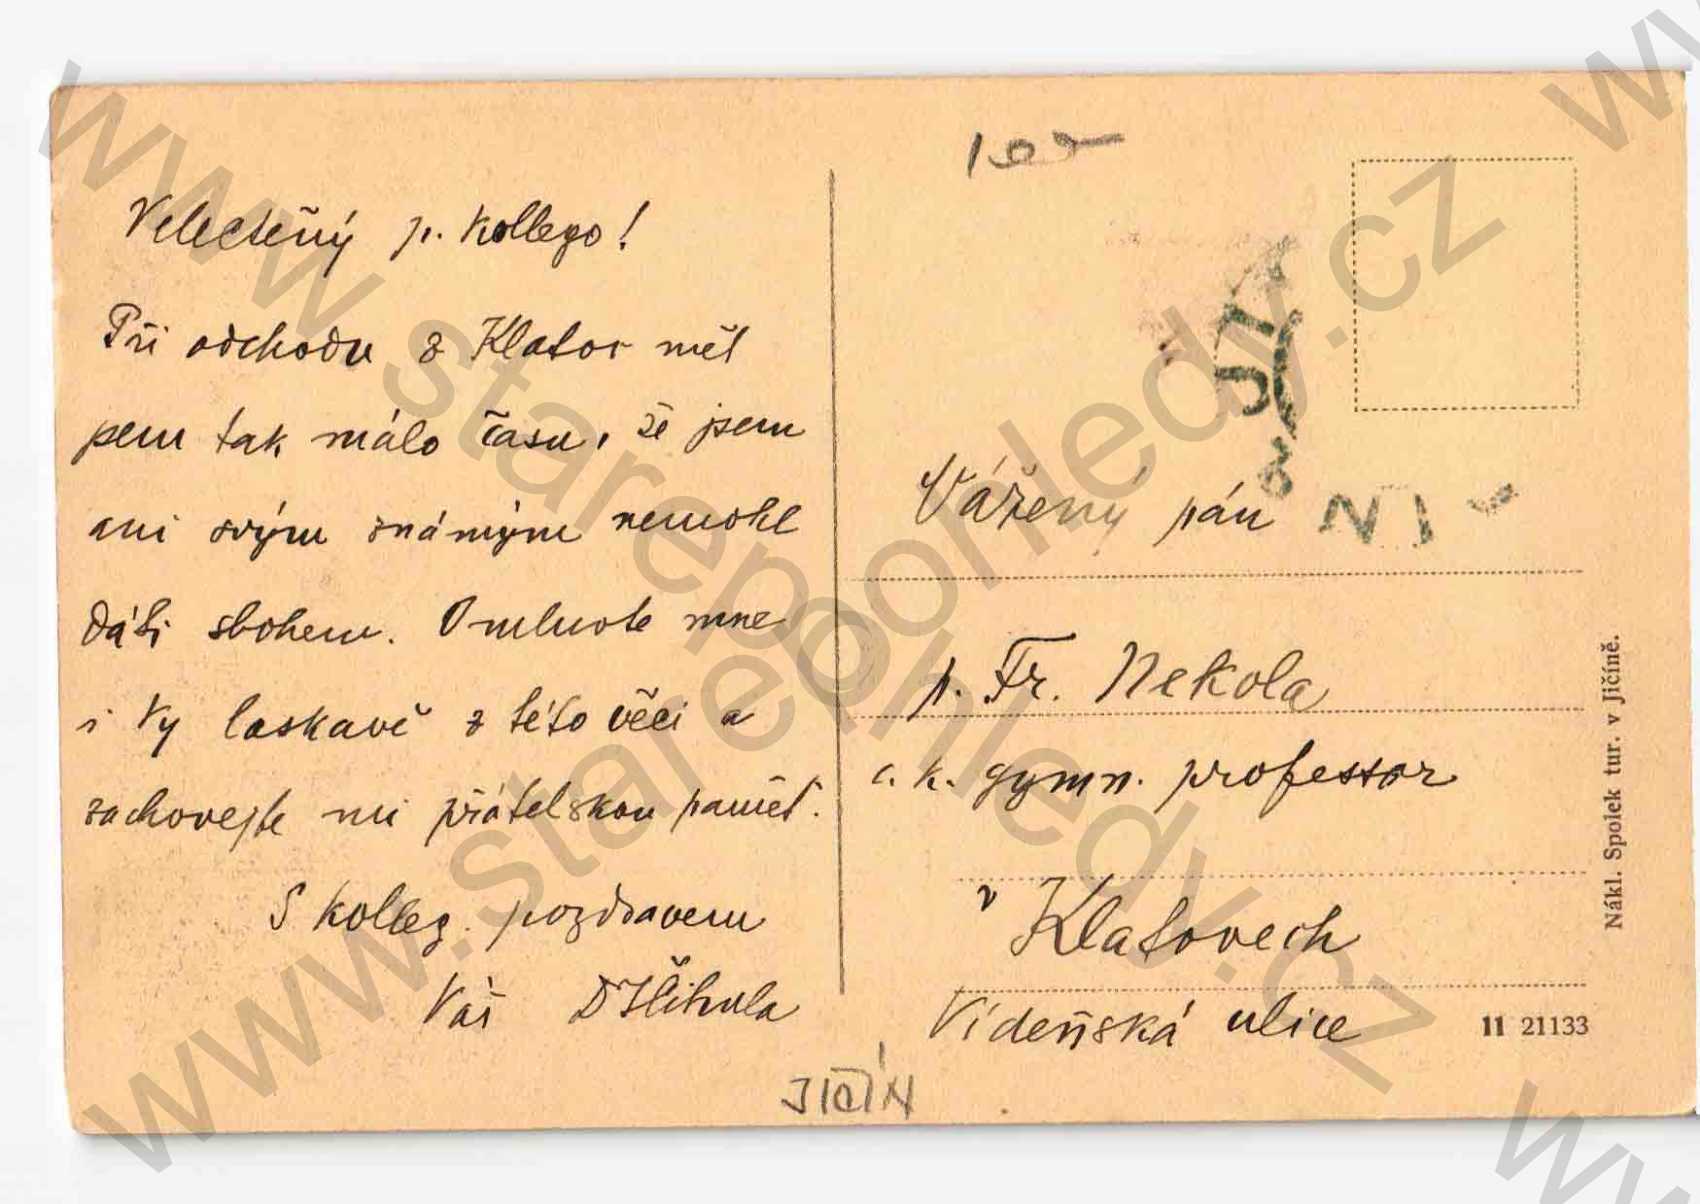 Velectěný p. kollego!
Při odchodu z Klatov měl
jsem tak málo času, že jsem
ani svým známým nemohl
dáti sbohem. Omluvte mne
i Vy laskavě z této věci a
zachovejte mi přátelskou paměť.
S kolleg. pozdravem
Váš
JIČÍN
Vážený pán
p. Fr. Nekola
c. k. gymn. professor
v Klatovech
Vídeňská ulice
11 21133
Nákl. Spolek tur. v Jičíně.
www.starepohledy.cz
www.starepohledy.cz